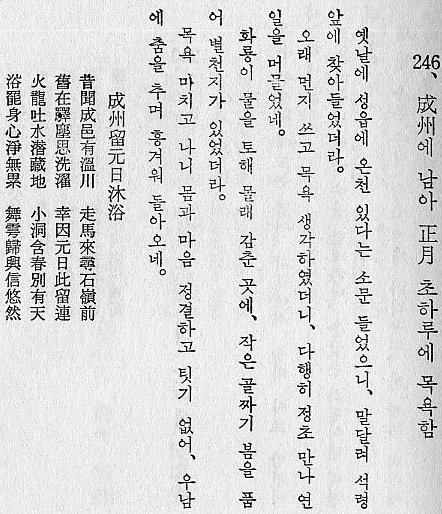 246、成州에 남아 正月 초하루에 목욕함
옛날에 성읍에 온천 있다는 소문 들었으니, 말달려 석령
앞에 찾아들었더라.
오래 먼지 쓰고 목욕 생각하였더니, 다행히 정초 만나 연
일을 머물었네.
화룡이 물을 토해 몰래 감춘 곳에, 작은 골짜기 봄을 품
어 별천지가 있었더라.
목욕 마치고 나니 몸과 마음 정결하고 팃기 없어, 우남
에 춤을 추며 흥겨워 돌아오네.
成州留元日沐浴
昔聞成邑有溫川 走馬來尋石嶺前
舊在驛塵思洗濯 幸因元日此留連
火龍吐水潛藏地 小洞含春別有天
浴罷身心淨無累 舞雩歸興信悠然